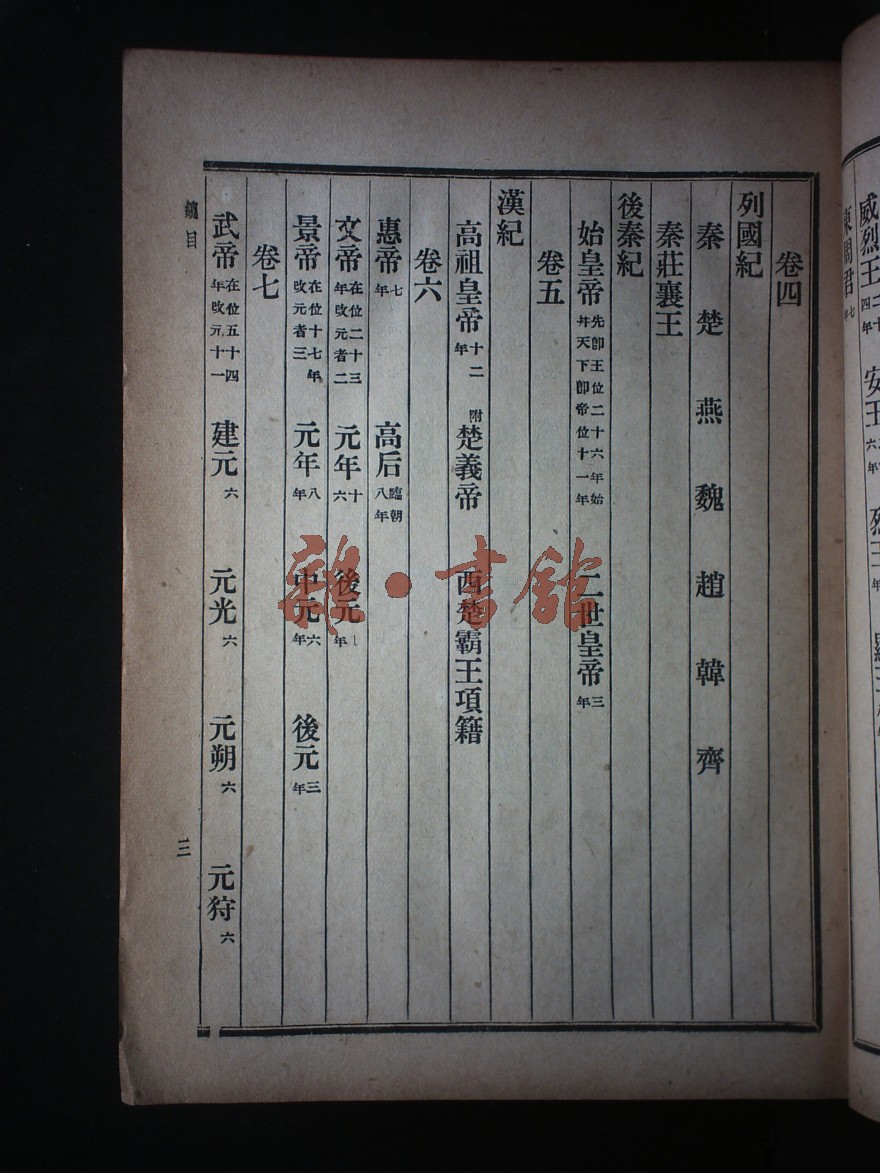 威烈王二十四年 安王二十六年 烈王七年
東周君七年
卷四
列國紀
秦 楚 燕 魏 趙 韓 齊
秦莊襄王
後秦紀
始皇帝先卽王位二十六年始幷天下卽帝位十一年 二世皇帝三年
卷五
漢紀
高祖皇帝十二年 附楚義帝 西楚霸王項籍
卷六
惠帝七年 高后臨朝八年
文帝在位二十三年改元者二 元年十六 後元年
景帝在位十七年改元者三 元年八年 中元六年 後元三年
卷七
武帝在位五十四年改元十一 建元六 元光六 元朔六 元狩六
總目
三
雜·書館